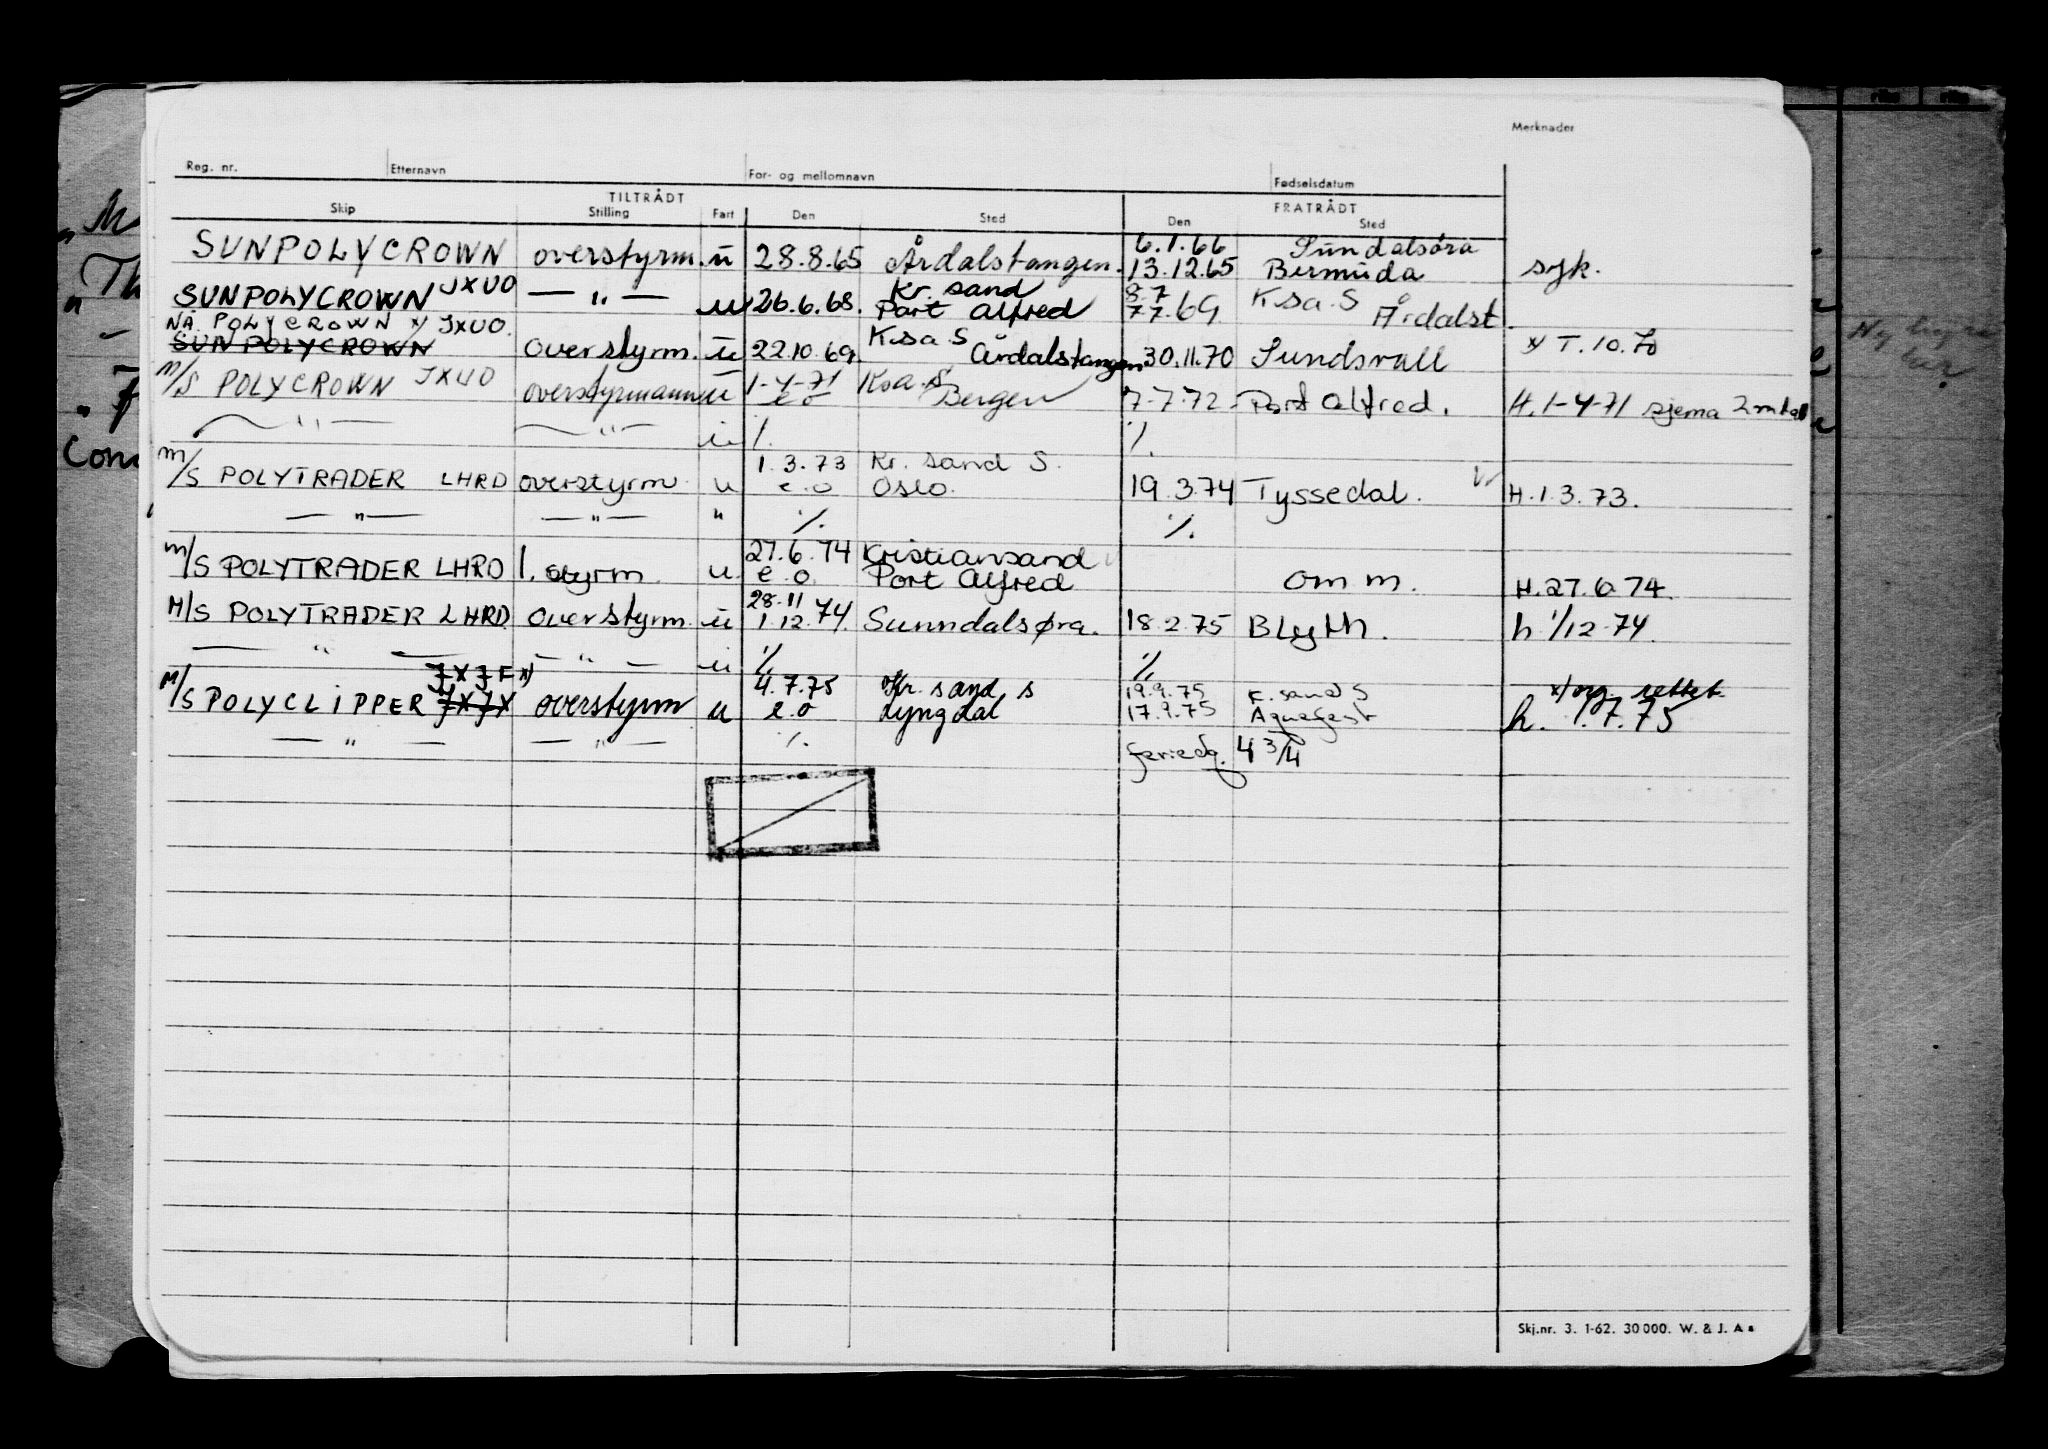 Merknader
Reg. nr. Etternavn For- og mellomnavn Fødselsdatum
TILTRÅDT FRATRÅDT
Skip Stilling Fart Den Sted Den Sted
6.1.66 Sundalsöra
SUNPOLYCROWN overstyrm. u 28.8.65 Årdalstangen. 13.12.65 Bermuda syk.
JXUO Kr. sand 8.7
SUNPOLYCROWN — " — u 26.6.68. Port Alfred 7.7.69 Ksa. S Årdalst.
NÅ POLYCROWN x/ JXUO. Ksa S
SUNPOLYCROWN Overstyrm. u 22.10.69. Årdalstangen 30.11.70 Sundsvall x/ T.10.70
1-4-71 Ksa. S
M/S POLYCROWN JXUO overstyrmann u e o Bergen 7-7-72 Port Alfred. H. 1-4-71 sjema
— " — — " — u ./. ./.
1.3.73 Kr. sand S.
M/S POLYTRADER LHRD overstyrm. u e.o Oslo. 19.3.74 Tyssedal. H.1.3.73.
— " — — " — " ./. ./.
27.6.74 Kristiansand
M/S POLYTRADER LHRD 1. styrm. u. e.o. Port Alfred om m. H.27.6.74.
28.11
M/S POLYTRADER LHRD Overstyrm. u 1.12.74. Sunndalsøra. 18.2.75 Blyth. h 1/12-74.
— " — — " — u ./. ./.
JXJF x) 4.7.75 Kr. sand s 19.9.75 K. sand S x/ org. rettet
M/S POLYCLIPPER JXJX overstyrm u e.o Lyngdal 17.9.75 h. 1.7.75
— " — — " — ./. feriedg. 4 3/4
Skj.nr. 3. 1-62. 30000. W. & J. A s